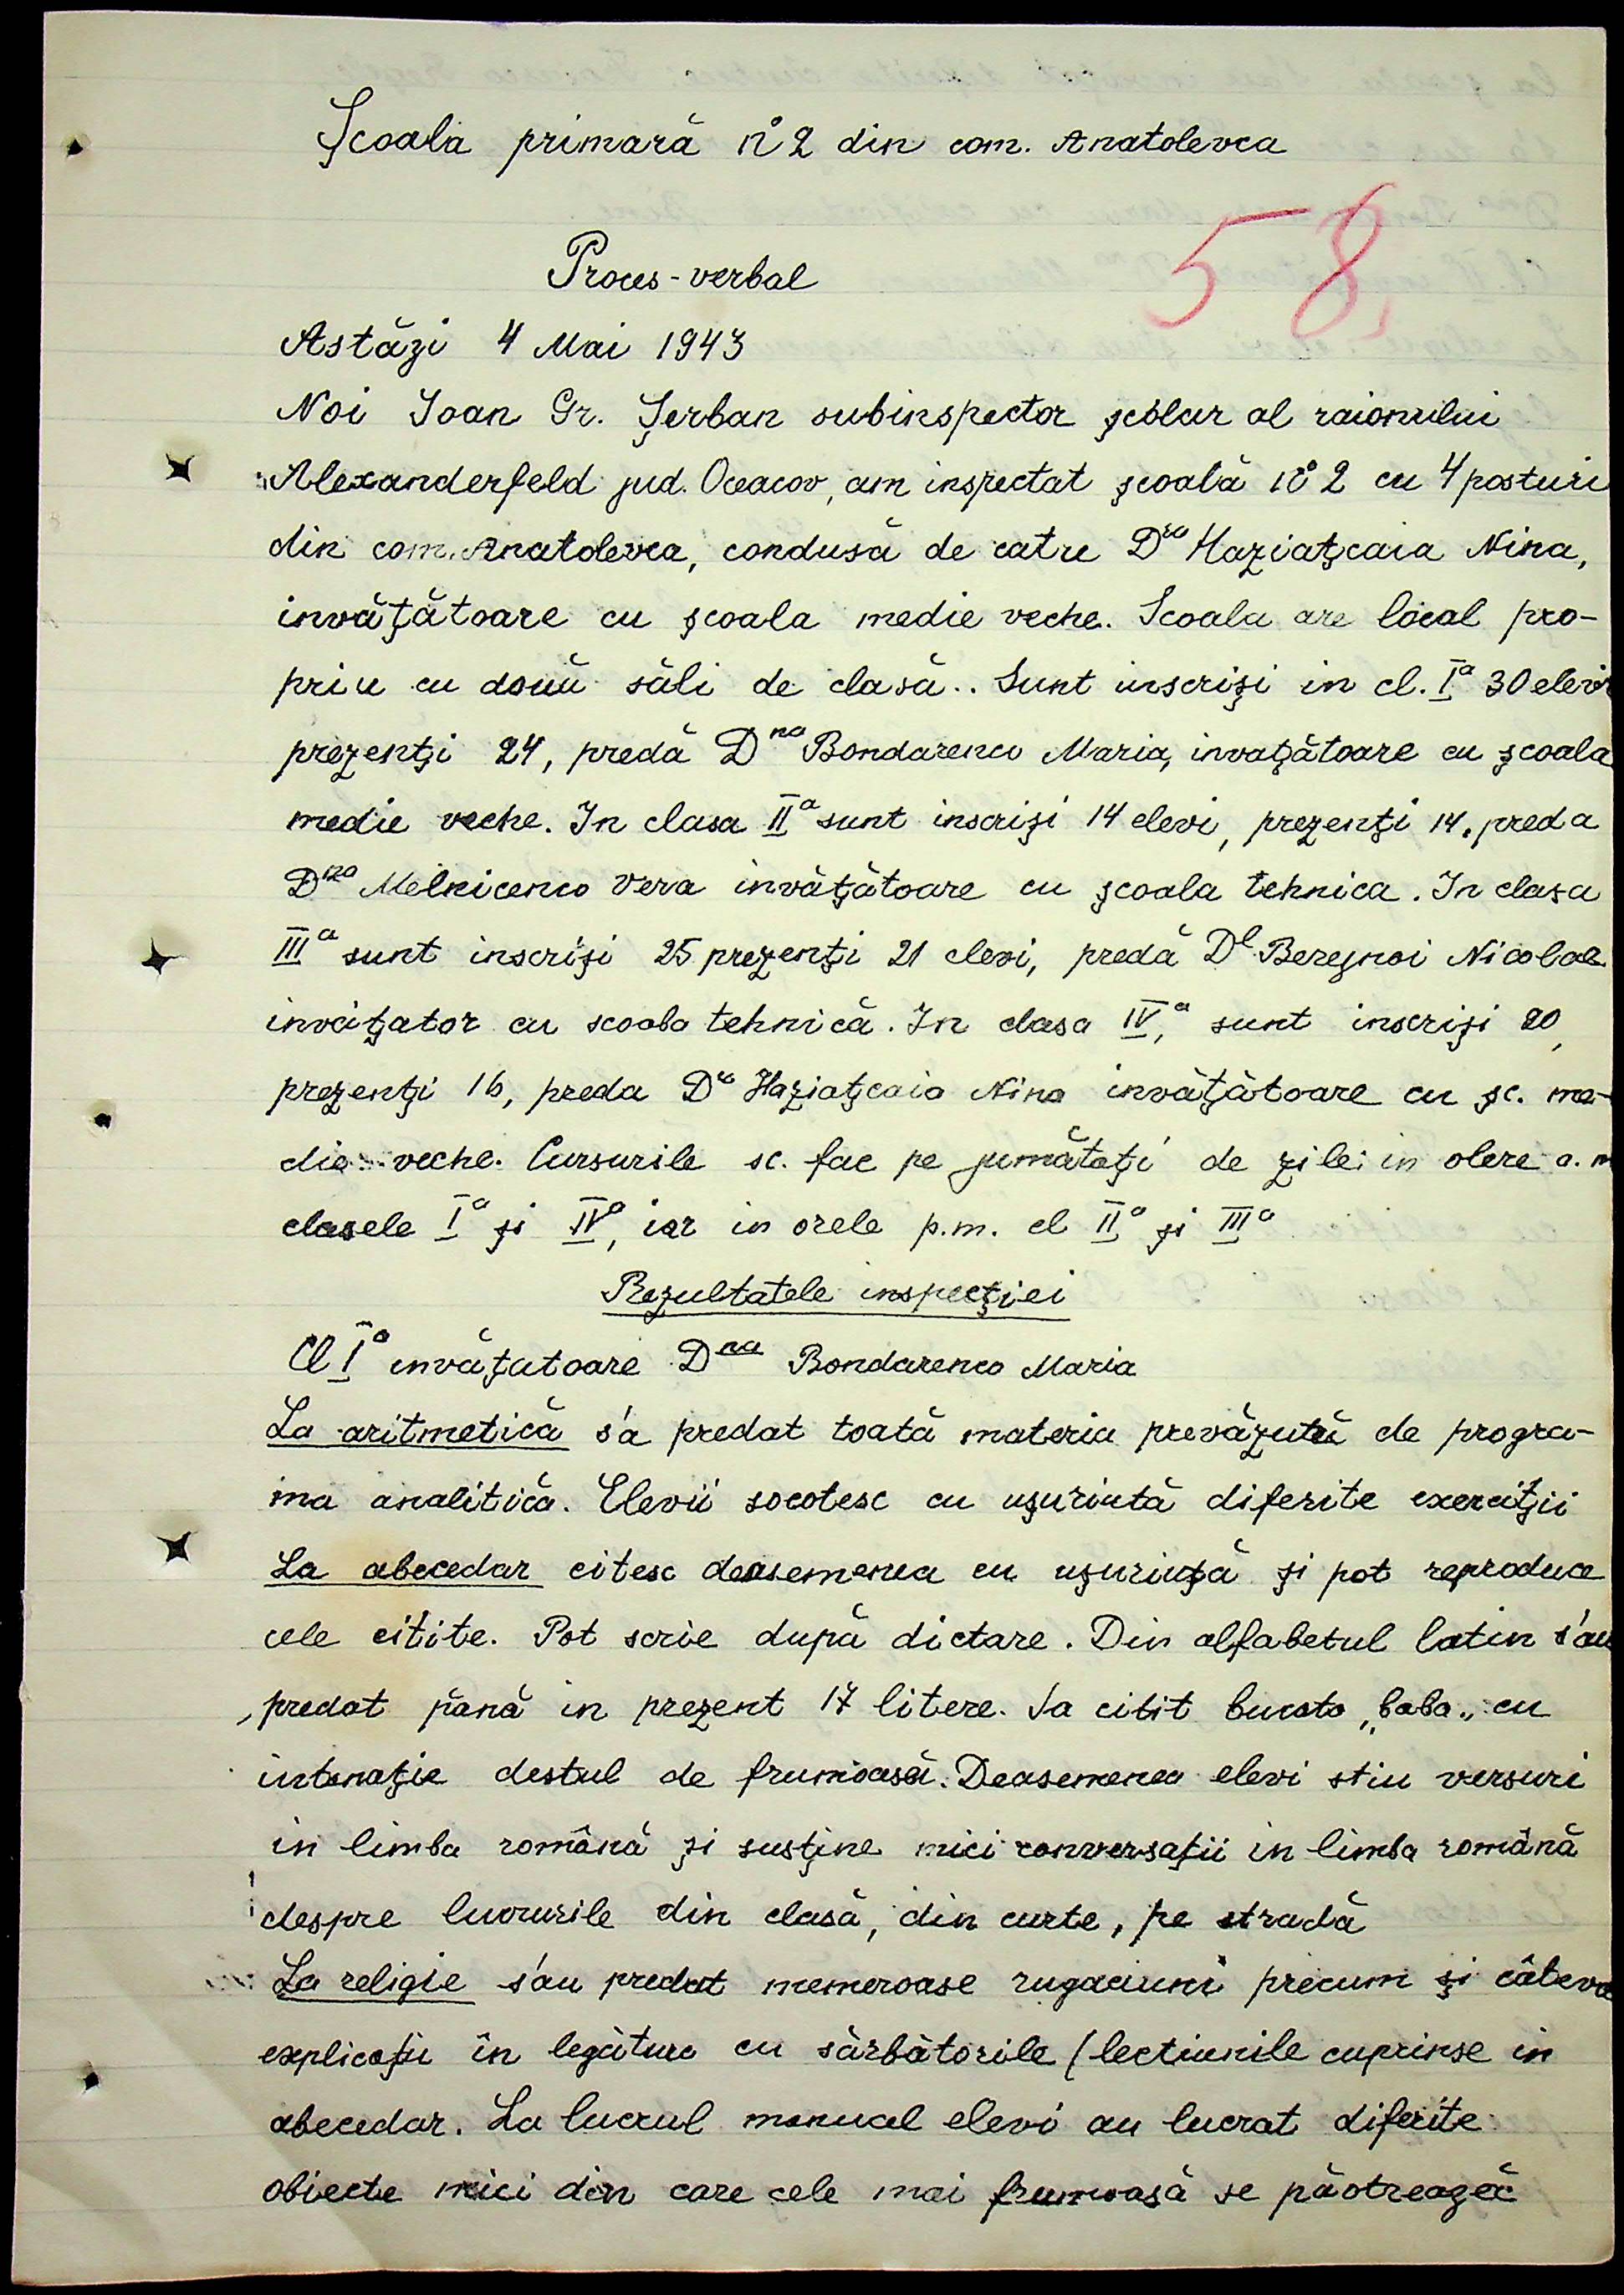 Școala primară nº 2 din com. Anatolevca
58
Proces-verbal
Astăzi 4 Mai 1943
Noi Ioan Gr. Șerban subinspector școlar al raionului
Alexanderfeld jud. Oceacov, am inspectat școală nº 2 cu 4 posturi
din com. Anatolevca, condusă de catre Dra Haziațcaia Nina,
invățătoare cu școala medie veche. Scoala are local pro-
priu cu două săli de clasă.. Sunt inscriși in cl. Iª 30 elevi
prezenți 24, predă Dna Bondarenco Maria, invațătoare cu școala
medie veche. In clasa IIª sunt inscriși 14 elevi, prezenți 14, preda
Dna Melnicenco Vera invățătoare cu școala tehnica. In clasa
IIIª sunt inscriși 25 prezenți 21 elevi, predă Dl Bereșnoi Nicolae
invățator cu scoala tehnică. In clasa IVª, sunt inscriși 20,
prezenți 16, preda Dra Haziațcaia Nina invățătoare cu șc. me-
die veche. Cursurile se fac pe jumătați de zile: in olere a.m
clasele Iª și IVª, iar in orele p.m. cl IIª și IIIª
Rezultatele inspecției
Cl Iª invățatoare Dna Bondarenco Maria
La aritmetică s'a predat toată materia prevăzută de progra-
ma analitică. Elevii socotesc cu ușurintă diferite exerciții
La abecedar citesc deasemenea cu ușurință și pot reproduce
cele citite. Pot scrie după dictare. Din alfabetul latin s'au
predat pană in prezent 17 litere. Sa citit bucata „baba„ cu
intonație destul de frumoasă. Deasemenea elevi stiu versuri
in limba română și susține mici conversații in limba română
despre lucrurile din clasă, din curte, pe stradă
La religie s'au predat memeroase rugaciuni precum și câteva
explicații în legătura cu sărbătorile (lectiunile cuprinse in
abecedar. La lucrul manual elevi au lucrat diferite
obiecte mici din care cele mai frumoasă se păotreagec